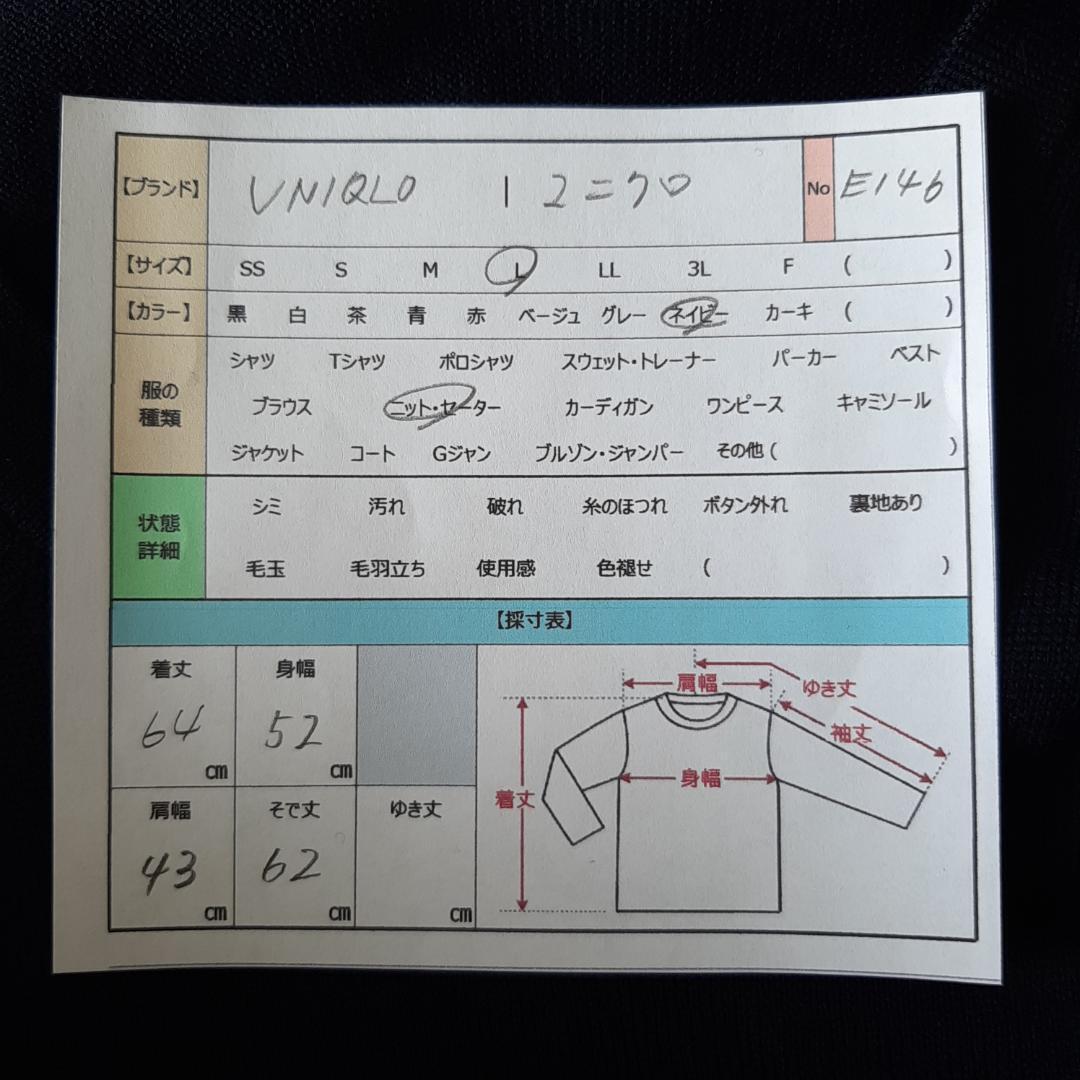 【ブランド】 UNIQLO | ユニクロ No E146
【サイズ】 SS S M L LL 3L F ( )
【カラー】 黒 白 茶 青 赤 ベージュ グレー ネイビー カーキ ( )
服の種類
シャツ Tシャツ ポロシャツ スウェット・トレーナー パーカー ベスト
ブラウス ニット・セーター カーディガン ワンピース キャミソール
ジャケット コート Gジャン ブルゾン・ジャンパー その他 ( )
状態詳細
シミ 汚れ 破れ 糸のほつれ ボタン外れ 裏地あり
毛玉 毛羽立ち 使用感 色褪せ ( )
【採寸表】
着丈 身幅
64 cm 52 cm
肩幅 そで丈 ゆき丈
43 cm 62 cm cm
肩幅 ゆき丈
袖丈
身幅
着丈